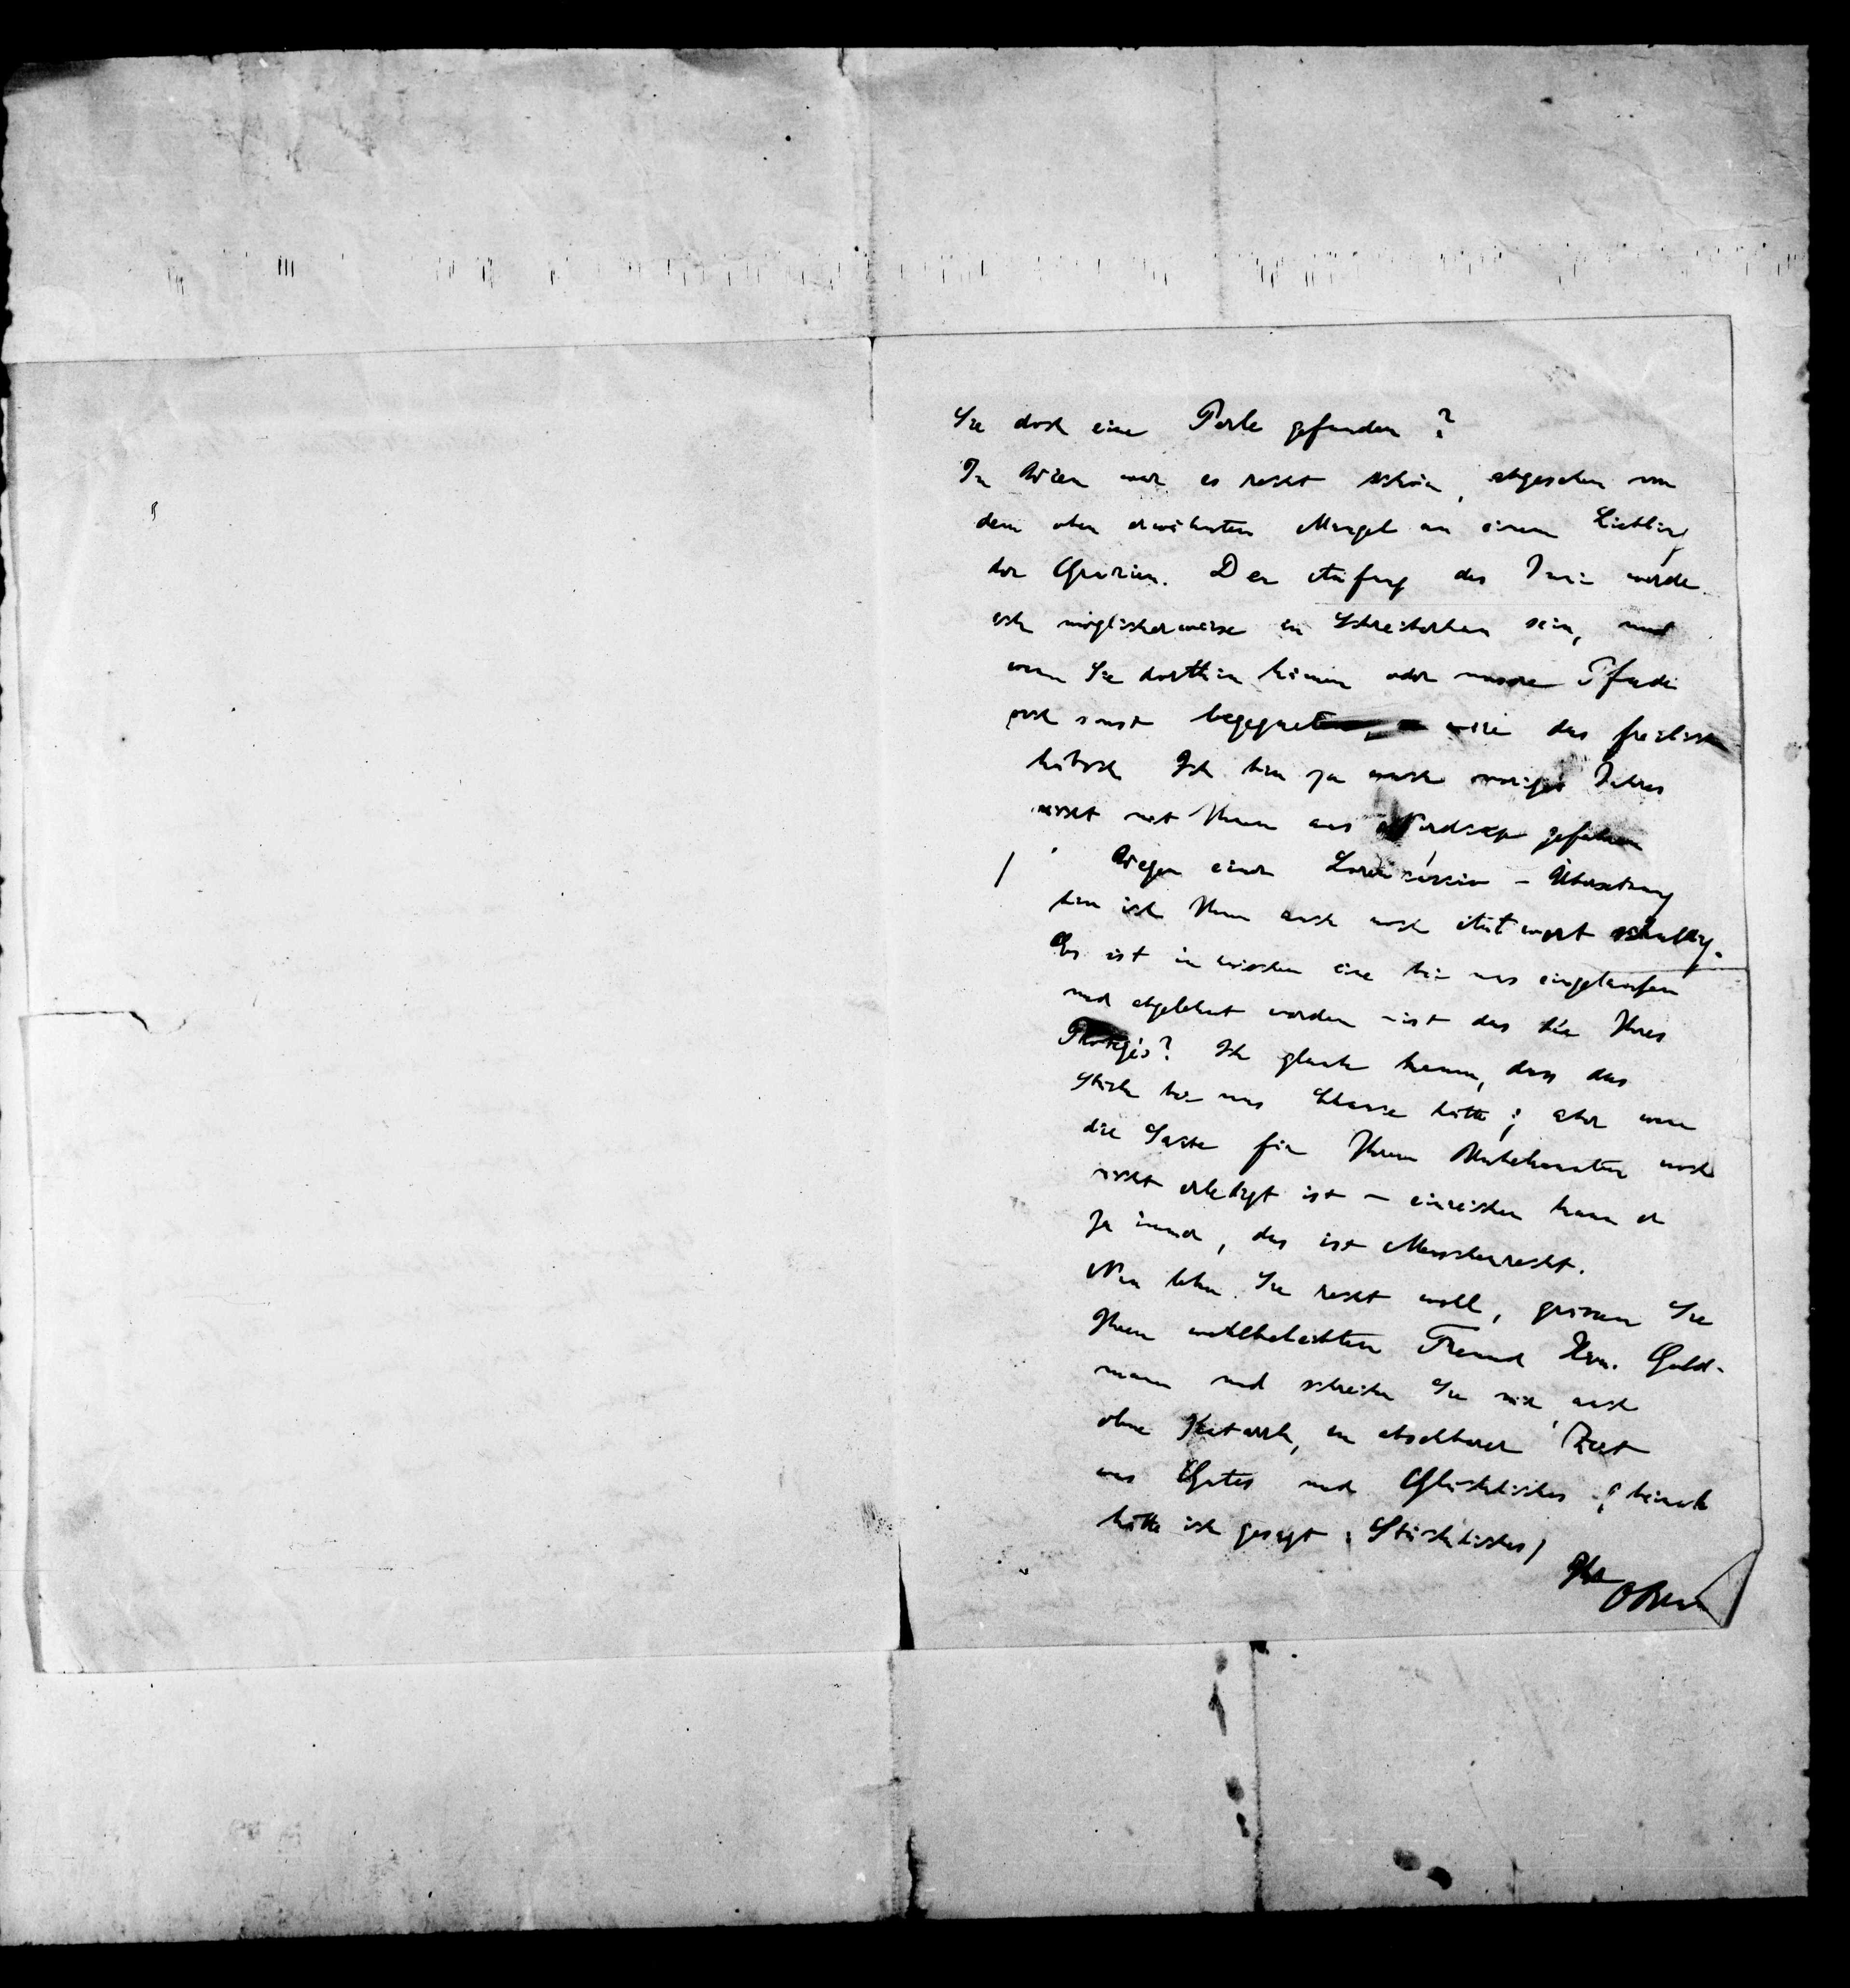 Sie doch eine Perle gefunden?
In Wien war es recht schön, abgesehen von
dem oben erwähnten Mangel an einem Liebling
der Grazien. Den Anfang des Juni werde
ich möglicherweise in Schreiberhau sein, und
wenn Sie dorthin kämen oder unsere Pfade
sich sonst begegneten, wäre das freilich
hübsch. Ich bin ja auch voriges Jahres
nicht mit Ihnen ans Nordcap gefahren
Wegen einer Lorenzaccio-Übersetzung
bin ich Ihnen auch noch Antwort schuldig.
Es ist inzwischen eine bei uns eingelaufen
und abgelehnt worden – ist das die Ihres
Protegés? Ich glaube kaum, dass das
Stück bei uns Chance hätte; aber wenn
die Sache für Ihren Unbekannten noch
nicht erledigt ist – einreichen kann er
ja immer, das ist Menschenrecht.
Nun leben Sie recht wohl, grüssen Sie
Ihren wohlbeleibten Freund Hrn. Gold-
mann und schreiben Sie mir, auch
ohne Katarrh, in absehbarer Zeit
was Gutes und Glückliches (beinah
hätte ich gesagt: Stückliches)
Ihr
OBrahm